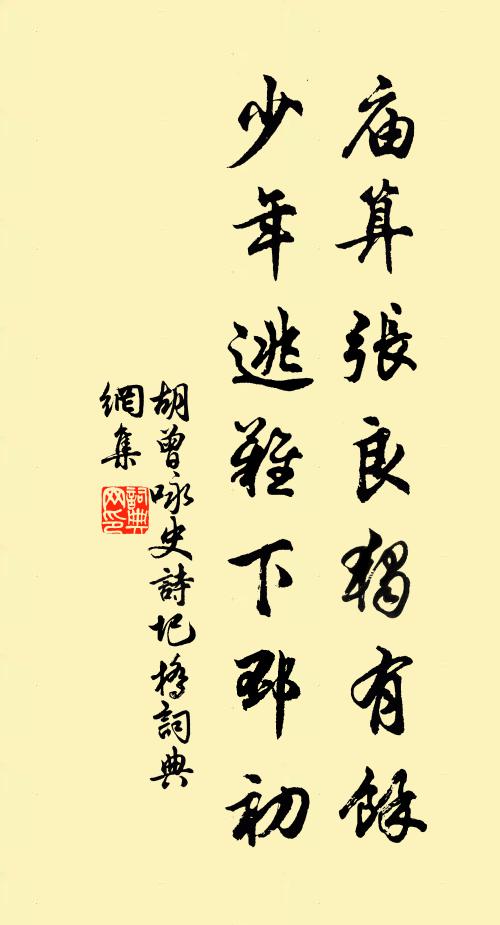 庙算張良獨有餘
少年逃難下邳初
胡曾咏史詩圯橋詞典
網集
詞典
网印